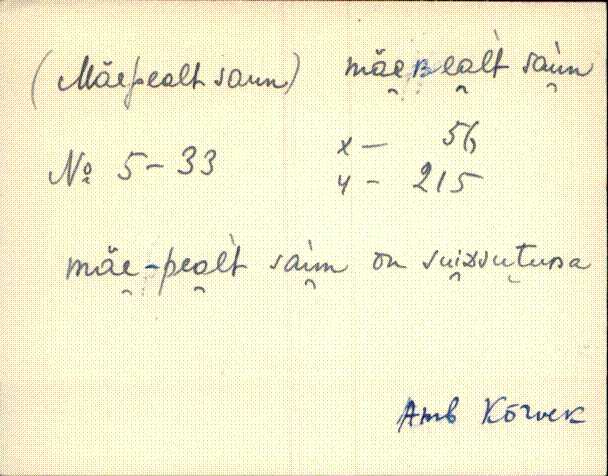 (Mäepealt saun) mäeʙea̮l̀t sau̮n
№ 5-33 x - 56
y - 215
mäe̮-pea̮l̀t sau̮n on sui̮tsutuʙa
Amb Kõrvek